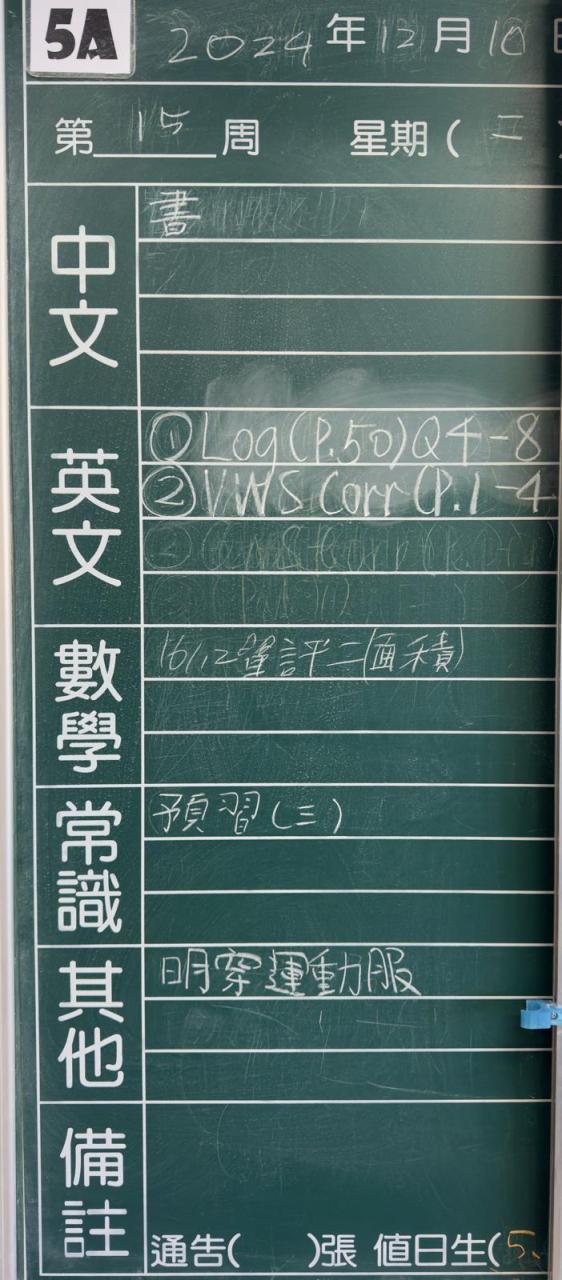 5A
2024年12月10日
第15周 星期(二)
中文
書
英文
①Log(P.50)Q4-8
②VWS Corr(P.1-4
數學
16/12單評二(面積)
常識
預習(三)
其他
明穿運動服
備註
通告( )張 值日生(5、